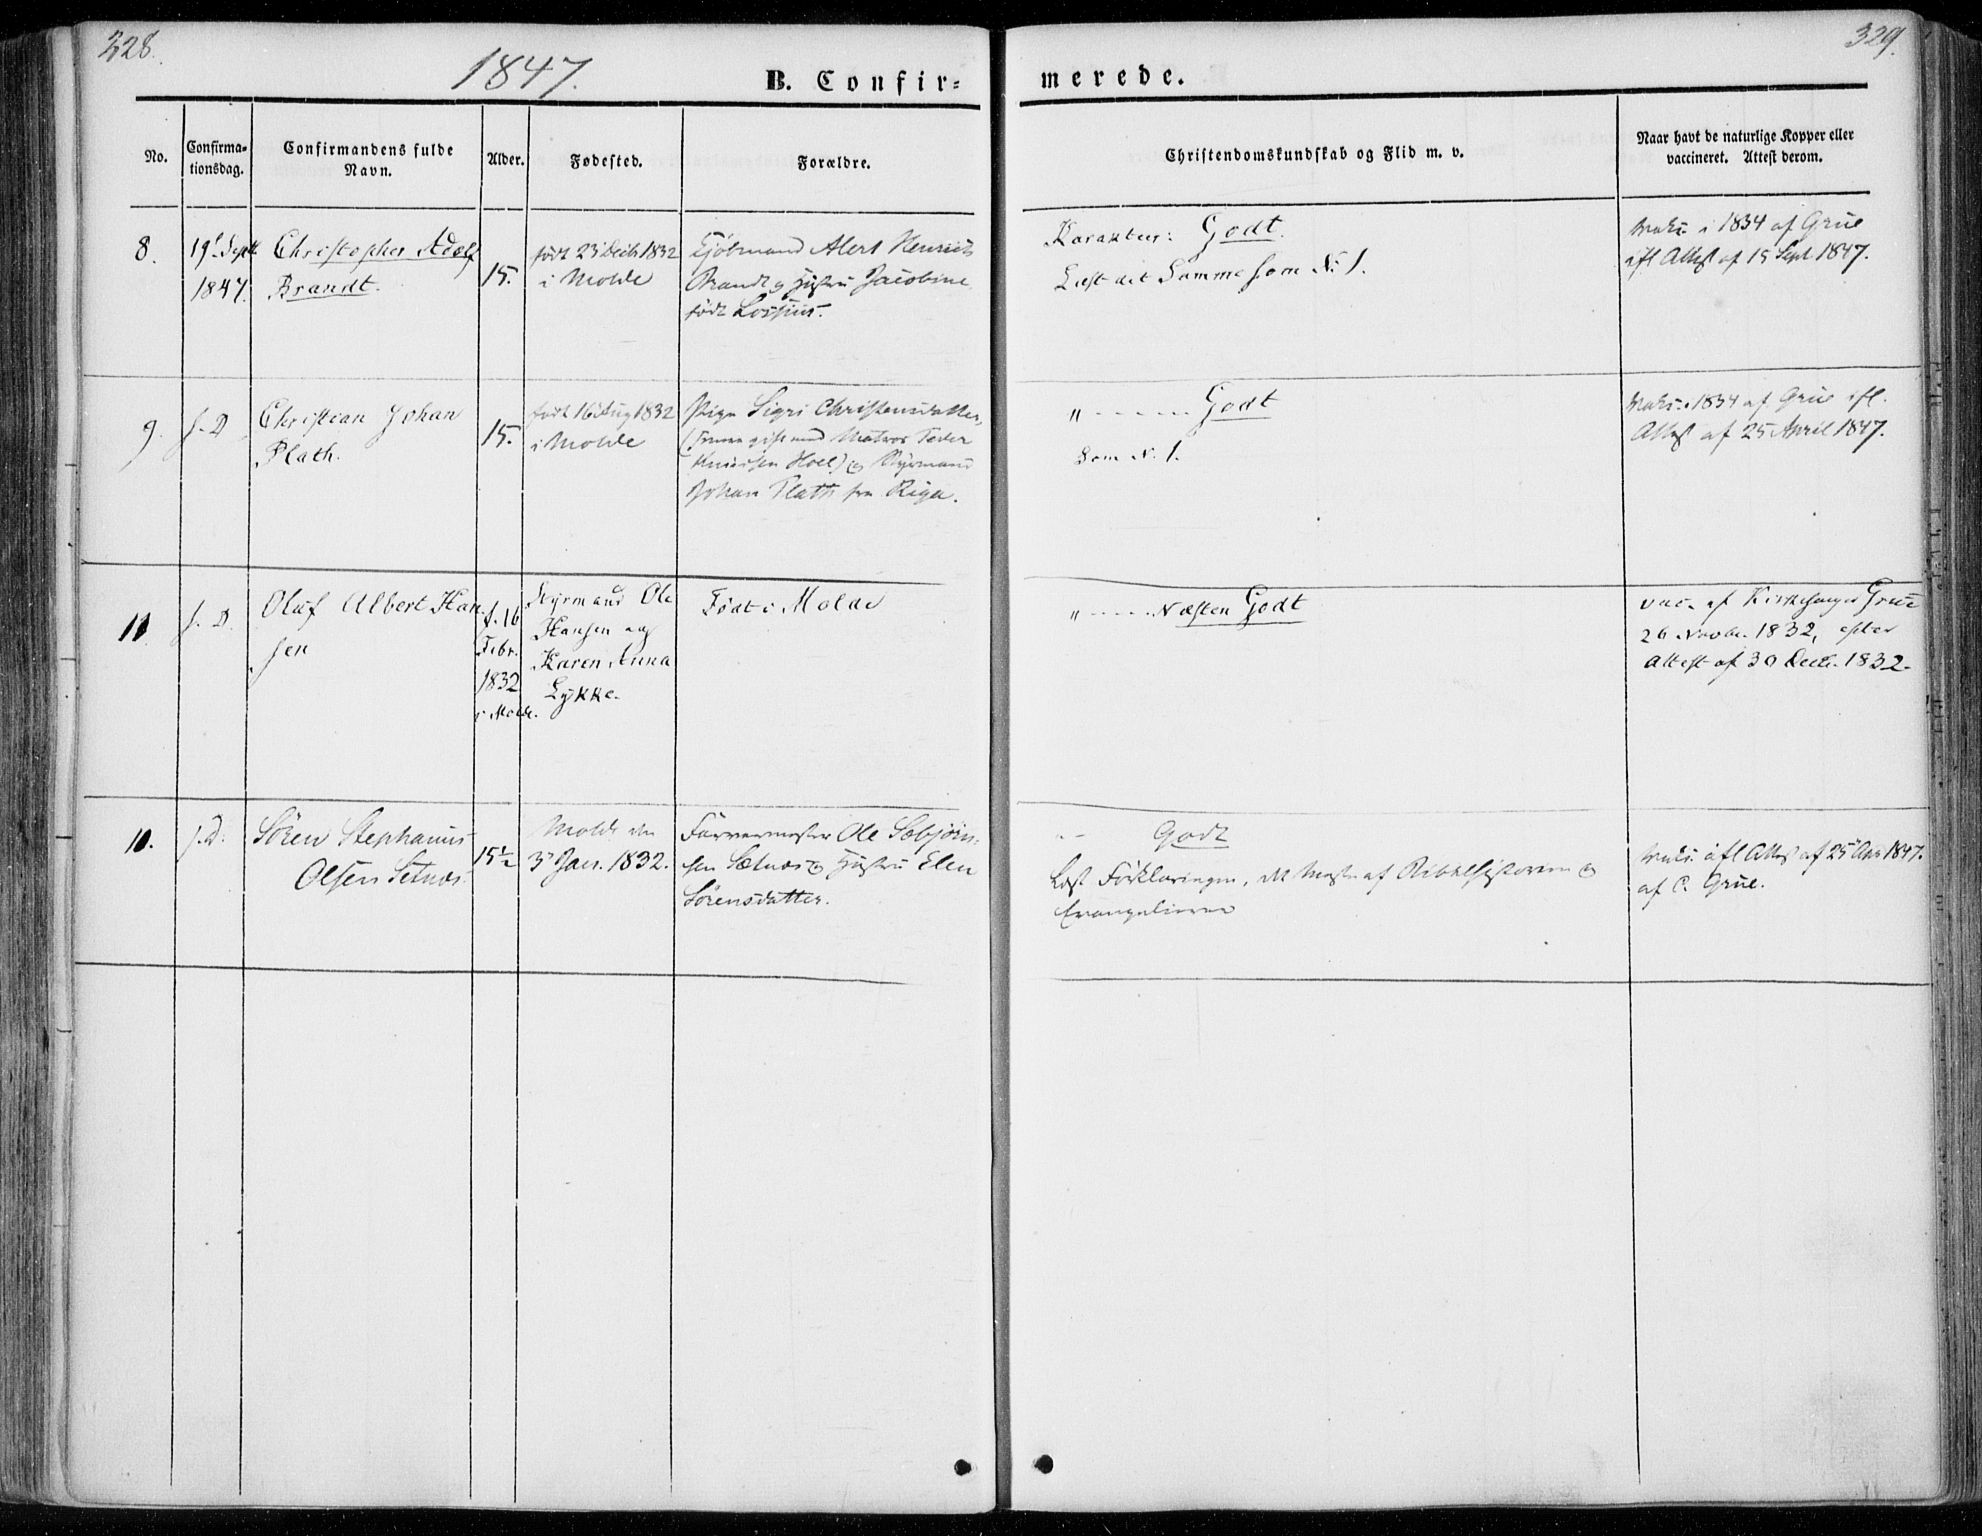 328.
329.
1847.
B. Confir=
merede.
No.
Confirma=
tionsdag.
Confirmandens fulde
Navn.
Alder.
Fødested.
Forældre.
Christendomskundskab og Flid m. v.
Naar havt de naturlige Kopper eller
vaccineret. Attest derom.
8.
19d. Septb
1847.
Christopher Adolf
Brandt.
15.
født 23 Decb 1832
i Molde
Kjöbmand Alert Henrich
Brandt og Hustru Jacobine
født Lossius.
Karakter: Godt.
Læst det Samme som No 1.
i 1834 af Grüe
ifl Attest af 15 Sept 1847.
9.
s. D.
Christian Johan
Plath.
15.
født 16 Aug 1832
i Molde
Pige Sigri Christensdatter,
gift med Matros Peder
Knudsen Hoel) og Styrmand
Johan Plath fra Riga.
" - - - - - Godt
Som N. 1.
1834 af Grüe ifl.
Attest af 25 April 1847.
11
s. D.
Oluf Albert Han
sen
f. 16
Febr.
1832
i Molde.
Styrmand Ole
Hansen og
Karen Anna
Lykke.
Født i Molde
" - - - - Næsten Godt
vac. af Kirkesanger Grüe
26 Novbr. 1832, efter
attest af 30 Decbr. 1832.
10.
s. D.
Sören Stephanus
Olsen Setnæs.
15½
Molde den
3. Jan. 1832.
Farvermester Ole Sæbjörn=
sen Sætnæs og Hustru Elen
Sörensdatter.
Godt
Læst Forklaringen, det meste af Bibelhistorien og
Evangelierne
ifl Attest af 25 Apr 1847.
af C. Grüe.